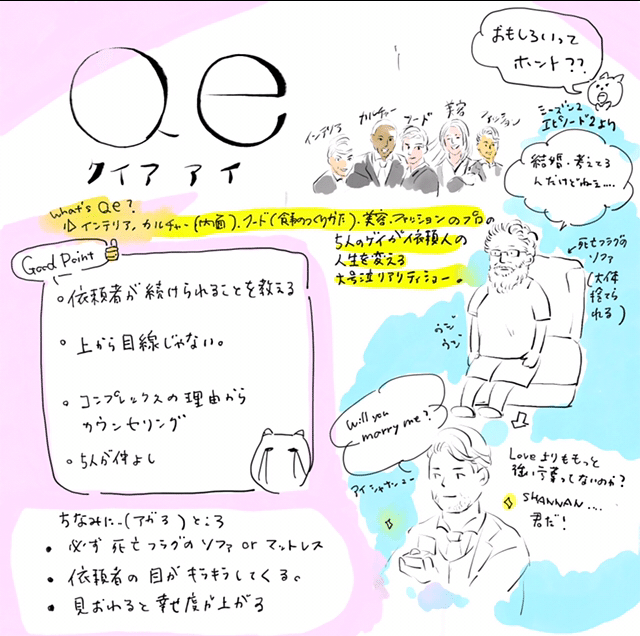 Qe
クイア アイ
おもしろいって
ホント??
シーズン2
エピソード2より
インテリア カルチャー フード 美容 ファッション
結婚、考えてる
んだけどねぇ….
What's Qe?
インテリア、カルチャー(内面)、フード(食事のつくりかた)、美容、ファッションのプロの
5人のゲイが依頼人の
人生を変える
大号泣リアリティショー。
←死亡フラグの
ソファ
(大体
捨てら
れる)
ウジ
ウジ
Good Point
依頼者が続けられることを教える
上から目線じゃない。
コンプレックスの理由から
カウンセリング
5人が仲よし
Will you
marry me?
Loveよりももっと
強い言葉ってないのか?
SHANNAN….
君だ!
ちなみに…(アガる)ところ
• 必ず死亡フラグのソファorマットレス
• 依頼者の目がキラキラしてくる。
• 見おわると幸せ度が上がる